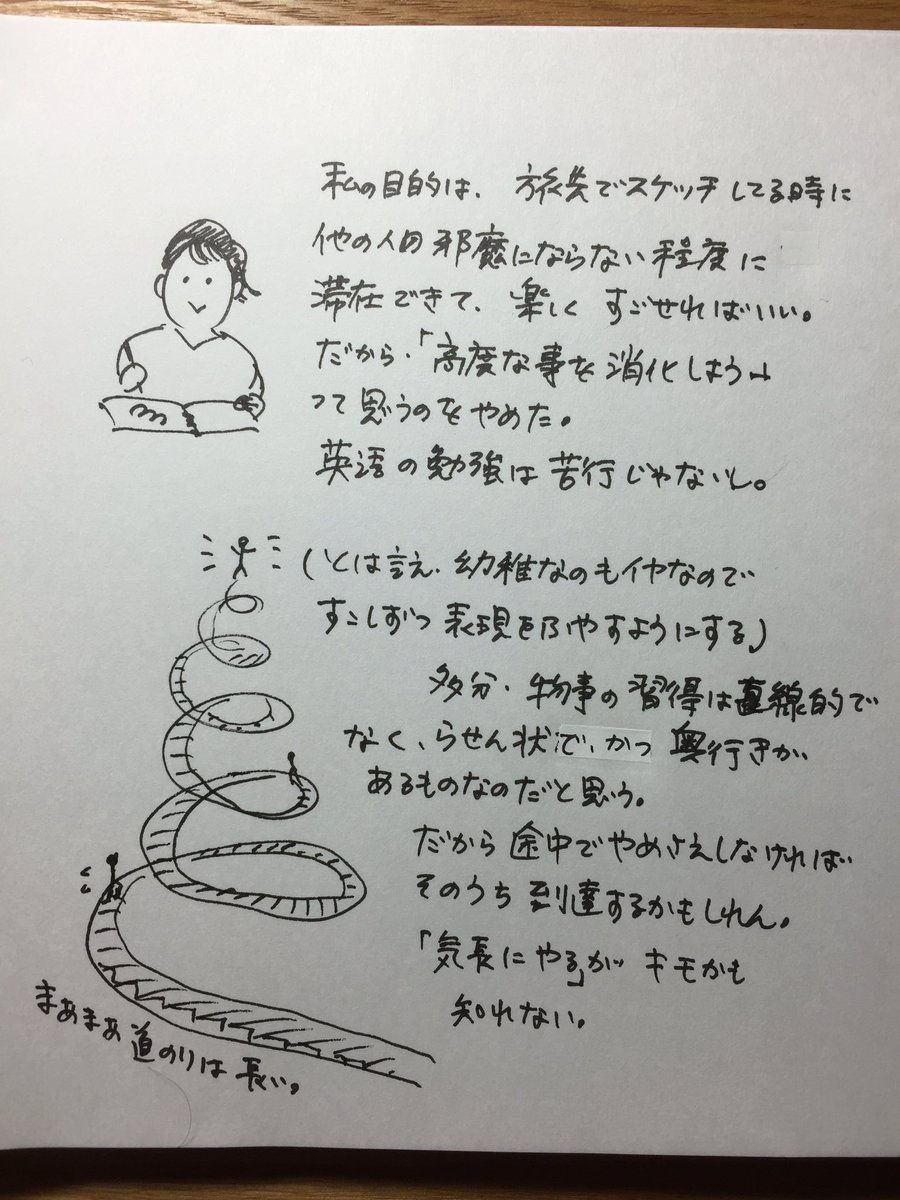 私の目的は、旅先でスケッチしてる時に
他の人の邪魔にならない程度に
滞在できて、楽しくすごせればいい。
だから・「高度な事を消化しよう」
って思うのをやめた。
英語の勉強は苦行じゃないし。
(とは言え、幼稚なのもイヤなので
すこしずつ表現をふやすようにする)
多分・物事の習得は直線的で
なく、らせん状で、かつ奥行きが
あるものなのだと思う。
だから途中でやめさえしなければ
そのうち到達するかもしれん。
「気長にやる」がキモかも
知れない。
まあまあ道のりは長い。